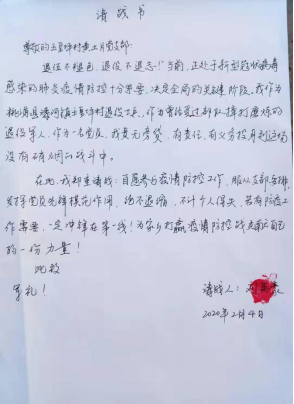 请战书
尊敬的土豆坪村黄土月党支部:
退伍不褪色,退役不退志!当前,正处于新型冠状病毒
感染的肺炎疫情防控十分严要、决定全局的关键阶段,我作为
桃源县 镇土豆坪村退役军人,作为曾经受过部队捶打磨炼的
退役军人,作为一名党员,我责无旁贷,有责任,有义务投身到这场
没有硝烟的战斗中。
在此,我郑重请战:自愿参与疫情防控工作,服从支部安排,
发挥党员先锋模范作用,绝不退缩,不计个人得失,若有防疫工
作需要,一定冲锋在第一线!为家乡打赢疫情防控战贡献自己
的一份力量!
此致
军礼!
请战人:
2020年2月4日